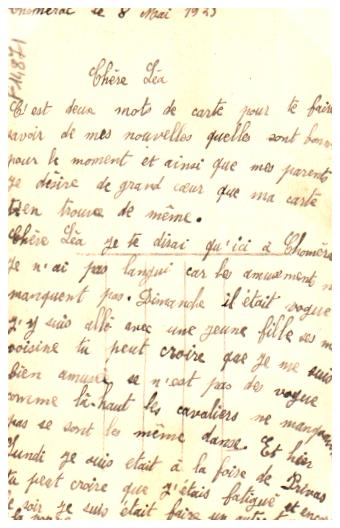 Chomérac le 8 Mai 1923
Chère Léa
C'est deux mots de carte pour te faire
savoir de mes nouvelles quelles sont bonne
pour le moment et ainsi que mes parents
je désire de grand cœur que ma carte
t'en trouve de même.
Chère Léa je te dirai qu'ici à Chomérac
je n'ai pas langui car les amusement ne
manquent pas. Dimanche il était vogue
j'y suis allé avec une jeune fille
voisine tu peut croire que je me suis
bien amusée se n'est pas des vogue
comme là-haut les cavaliers ne manquent
pas se sont les même danse. Et hier
lundi je suis était à la foire de Privas
tu peut croire que j'étais fatigué et encore
le soir je suis était faire un